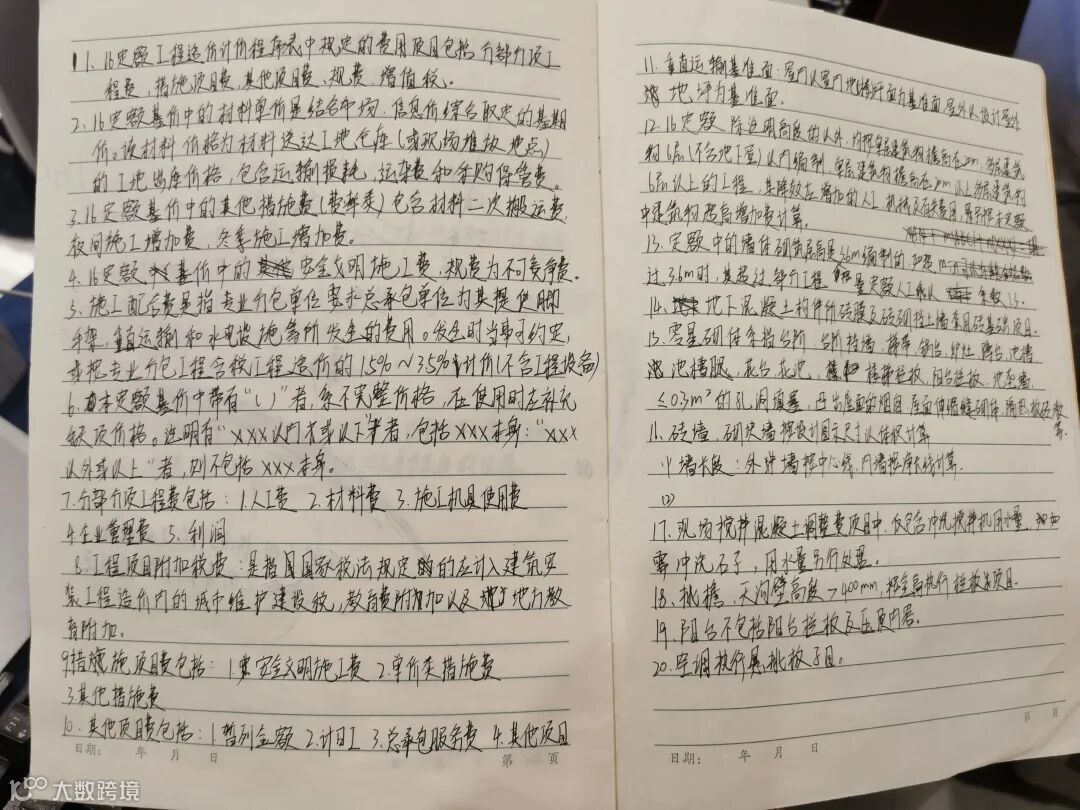 1. 16定额工程造价计价程序表中规定的费用项目包括分部分项工
程费，措施项目费，其他项目费、规费、增值税。
2. 16定额基价中的材料单价是结合市场、信息价综合取定的基期
价。该材料价格为材料送达工地仓库(或现场堆放地点)
的工地出库价格，包含运输损耗、运杂费和采购保管费。
3. 16定额基价中的其他措施费(费率类)包含材料二次搬运费，
夜间施工增加费，冬季施工增加费。
4. 16定额基价中的安全文明施工费、规费为不可竞争费。
5. 施工配合费是指专业分包单位要求总承包单位为其提供脚
手架，垂直运输和水电设施等所发生的费用。发生时当事方约定，
或按专业分包工程含税工程造价的1.5%～3.5%计价(不含工程设备)
6. 本定额基价中带有"( )"者，系不完整价格，在使用时应补充
缺项价格。注明有"XXX以内或以下"者，包括XXX本身；"XXX
以外或以上"者，则不包括XXX本身。
7. 分部分项工程费包括：1.人工费 2.材料费 3.施工机具使用费
4.企业管理费 5.利润
8. 工程项目附加税费：是指国家税法规定的应计入建筑安
装工程造价内的城市维护建设税，教育费附加以及地方教
育附加。
9. 措施项目费包括：1.安全文明施工费 2.单价类措施费
3.其他措施费
10. 其他项目费包括：1.暂列金额 2.计日工 3.总承包服务费 4.其他项目
日期： 年 月 日 第 页
11. 垂直运输基准面：室内以室内地坪面为基准面，室外以设计室外
地坪为基准面。
12. 16定额除注明高度的以外，均按单层建筑物檐高在20m，多层建筑
物6层(不含地下室)以内编制，单层建筑物檐高在20m以上，多层建筑物
6层以上的工程，其降效应增加的人工机械及有关费用，
中建筑物超高增加费计算。
13. 定额中的墙体砌筑层高是按3.6m编制的，如超
过3.6m时，其超过部分工程量定额人工乘以系数1.3。
14. 地下混凝土构件所砖膜及砖砌挡土墙套用砖基础项目。
15. 零星砌体系指台阶、台阶挡墙、梯带、锅台、炉灶、蹲台、池槽、
池槽腿、花台、花池、楼梯栏板、阳台栏板、地垄墙、
≤0.3m²的孔洞填塞，凸出屋面的烟囱、屋面伸缩缝砌体、隔热板砖墩
等。
16. 砖墙、砌块墙按设计图示尺寸以体积计算
(1)墙长度：外墙按中心线，内墙按净长线计算。
(2)
17. 现场搅拌混凝土调整费项目中，仅包含冲洗搅拌机用水量，如
需冲洗石子，用水量另行处理。
18. 挑檐、天沟壁高度>400mm，按全高执行栏板项目。
19. 阳台不包括阳台栏板及压顶内容。
20. 空调板执行悬挑板子目。
第 页
日期： 年 月 日
大数跨境